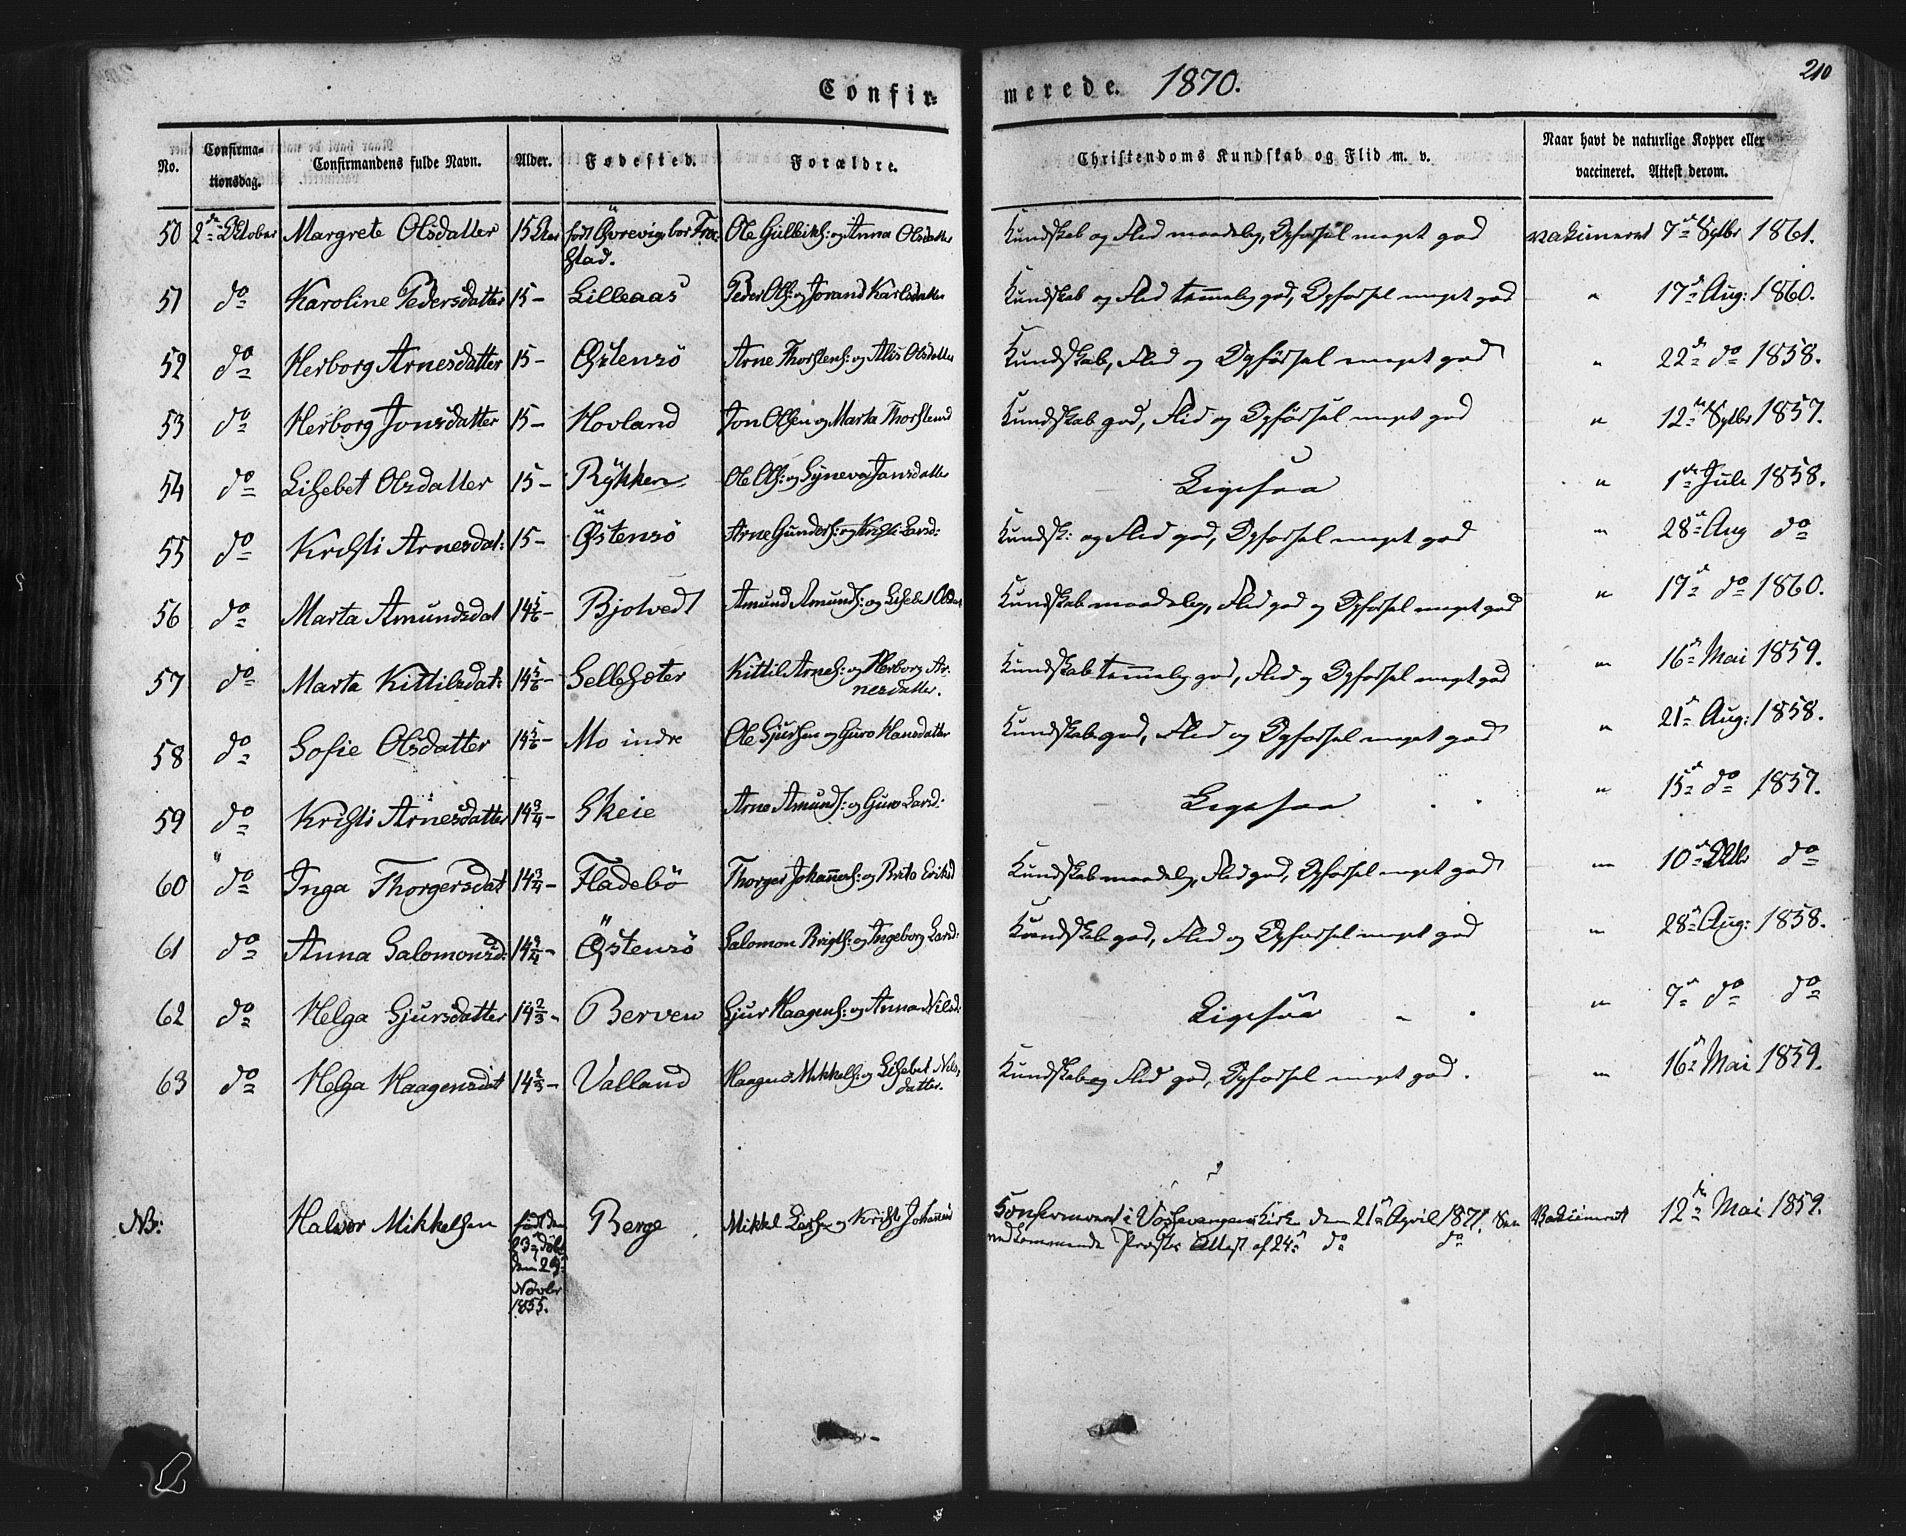 Confir-
merede. 1870.
210
No. Confirma-tionsdag. Confirmandens fulde Navn. Alder. Fødested. Forældre. Christendoms Kundskab og Flid m. v. Naar havt de naturlige Kopper eller vaccineret. Attest derom.
50 2den Oktober Margrete Olsdatter 15 født Øvrevig, bor Ole Gulleiks: og Anna Olsdatter Kundskab og Flid maadelig, Opførsel meget god vakcineret 7de Septbr 1861.
stad.
51 do Karoline Pedersdatter 15 – Lilleaas Peder Ols: og Jorand Karlsdatter Kundskab og Flid temmelig god, Opførsel meget god " 17de Aug: 1860.
52 do Herborg Arnesdatter 15 – Østensø Arne Thorstens: og Alis Olsdatter Kundskab, Flid og Opførsel meget god " 22de do 1858.
53 do Herborg Jonsdatter 15 – Hovland Jon Olsen og Marta Thorstensd Kundskab god, Flid og Opførsel meget god " 12te Septbr 1857.
54 do Lisebet Olsdatter 15 – Rykken Ole Ols: og Syneva Jansdatter Ligesaa " 1ste Juli 1858.
55 do Kristi Arnesdat: 15 – Østensø Arne Gunders: og Kristi Larsd: Kundsk: og Flid god, Opførsel meget god " 28de Aug do
56 do Marta Amundsdat 14 5/6 – Bjotvedt Amund Amunds: og Lisebet Olsdat Kundskab maadelig, Flid god og Opførsel meget god " 17de do 1860.
57 do Marta Kittilsdat: 14 5/6 – Sellesæter Kittil Arnes: og Herborg Ar- Kundskab temmelig god, Flid og Opførsel meget god " 16de Mai 1859.
nesdatter.
58 do Sofie Olsdatter 14 5/6 – Mo indre Ole Sjursen og Guro Hansdatter Kundskab god, Flid og Opførsel meget god " 21de Aug: 1858.
59 do Kristi Arnesdatter 14 3/4 – Skeie Arne Amunds: og Guro Larsd: Ligesaa " 15de do 1857.
60 do Inga Thorgersdat 14 3/4 – Fladebø Thorger Johannes: og Brita Eriksd Kundskab maadelig, Flid god, Opførsel meget god " 10de do
61 do Anna Salomonsd: 14 3/4 – Østensø Salomon og Ingeborg Larsd: Kundskab god, Flid og Opførsel meget god " 28de Aug: 1858.
62 do Helga Sjursdatter 14 2/3 – Berven Sjur Haagens: og Anna Nilsd: Ligesaa " 7de do do
63 do Helga Haagensdat 14 2/3 – Valland Haagen Mikkels: og Lisebet Nils- Kundskab og Flid god, Opførsel meget god. " 16de Mai 1859.
datter.
NB: Halvor Mikkelsen født den Berge Mikkel og Kristi Johannesd Konfirmeret i Vossevangens Kirke den 21de April 1871. Vakcineret 12te Mai 1859.
23de døbt vedkommende Præsts Attest af 24de do do
den 29de
Novbr
1855.